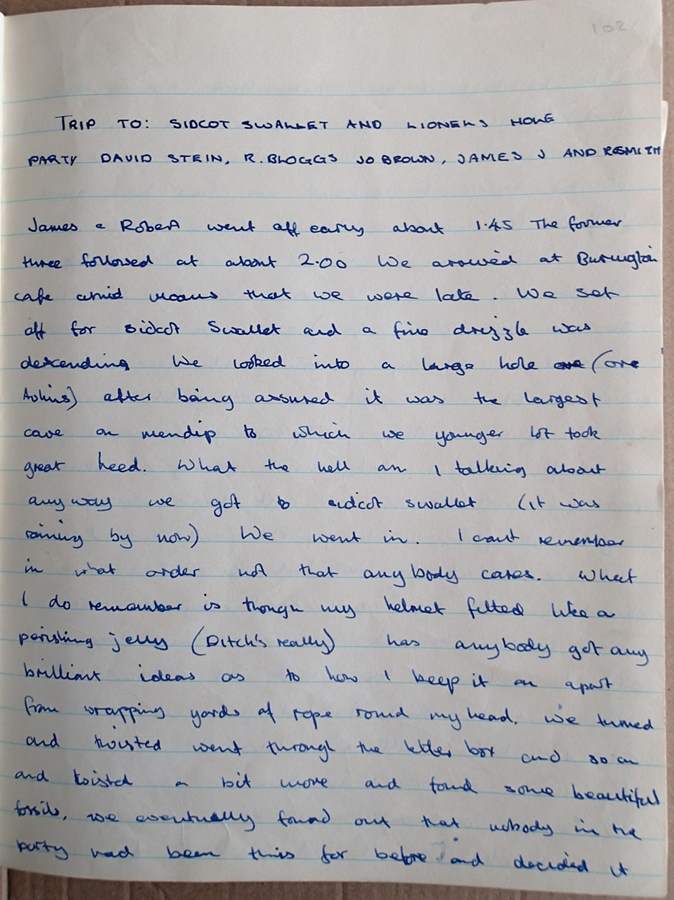 102
TRIP TO: SIDCOT SWALLET AND LIONELS HOLE
PARTY DAVID STEIN, R.BLOGGS JO BROWN, JAMES J AND R SMITH
James & Robert went off early about 1.45 The former
three followed at about 2.00 We arrived at Burrington
cafe amid moans that we were late. We set
off for sidcot Swallet and a fine drizzle was
descending We looked into a large hole (one
) after being assured it was the largest
cave on mendip to which we younger lot took
great heed. What the hell am I talking about
anyway we got to sidcot swallet (it was
raining by now) We went in. I cant remember
in what order not that anybody cares. What
I do remember is though my helmet fitted like a
perishing jelly (Ditch's really) has anybody got any
brilliant ideas as to how I keep it on apart
from wrapping yards of rope round my head. We turned
and twisted went through the letter box and so on
and twisted a bit more and found some beautiful
fossils, we eventually found out that nobody in the
party had been this far before and decided it